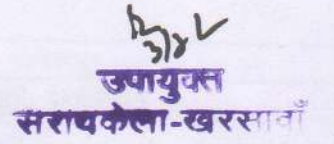 उपायुक्त
सरायकेला-खरसावाँ